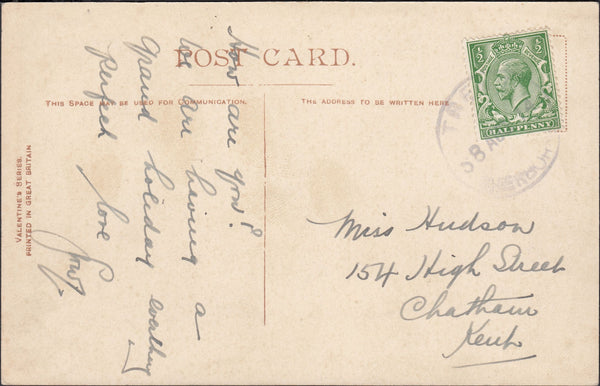 POST CARD.
THIS SPACE MAY BE USED FOR COMMUNICATION.
THE ADDRESS TO BE WRITTEN HERE
VALENTINE'S SERIES.
PRINTED IN GREAT BRITAIN
How are you?
We are having a
grand holiday weather
perfect love
Miss Hudson
154 High Street
Chatham
Kent
½ ½
HALFPENNY
TRE
8 AU